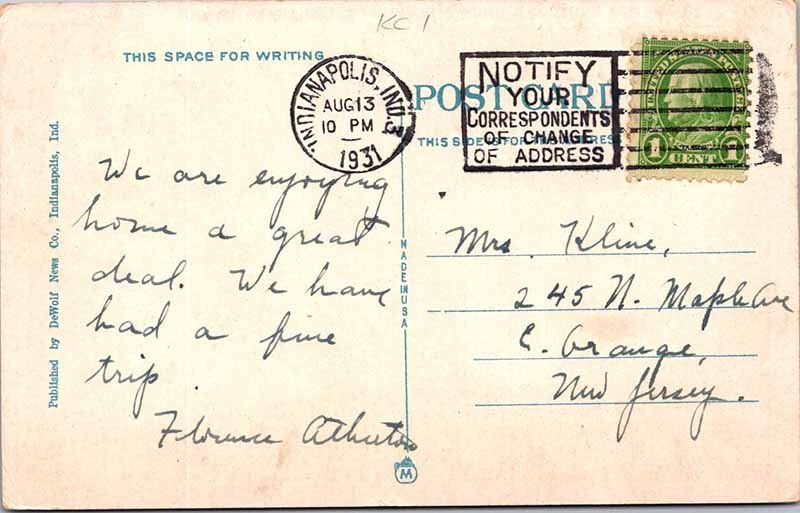 KC 1
THIS SPACE FOR WRITING
INDIANAPOLIS, IND. 3
AUG 13
10 PM
1931
NOTIFY
YOUR
CORRESPONDENTS
OF CHANGE
OF ADDRESS
POST CARD
THIS SIDE IS FOR THE ADDRESS
1 CENT 1
Published by DeWolf News Co., Indianapolis, Ind.
We are enjoying
home a great
deal. We have
had a fine
trip.
Florence Atherton
MADE IN USA
M
Mrs. Kline,
245 N. Maple Ave
E. Orange,
New Jersey.